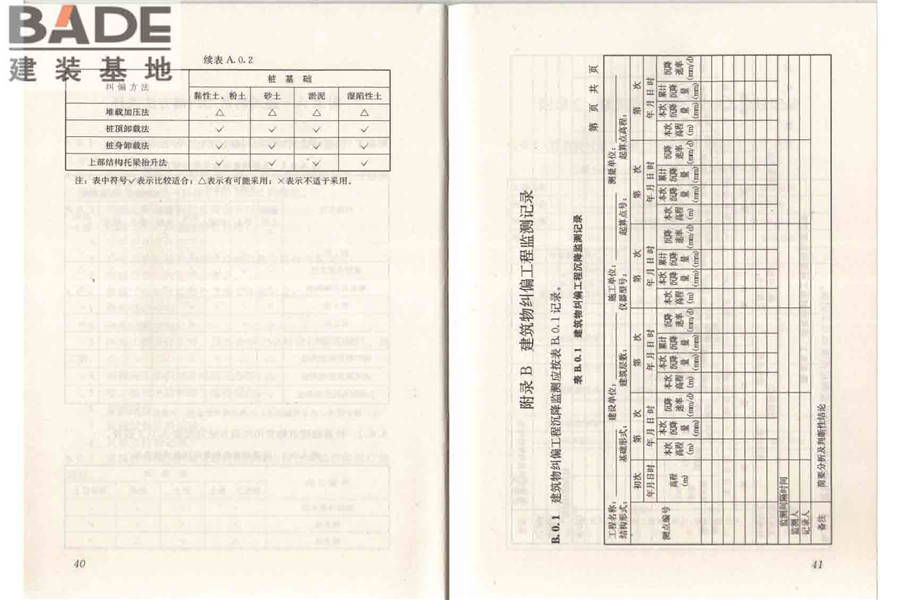 BADE
建装基地
续表 A.0.2
纠偏方法 桩基础
黏性土、粉土 砂土 淤泥 湿陷性土
堆载加压法 △ △ △ △
桩顶卸载法 ✓ ✓ ✓ ✓
桩身卸载法 ✓ ✓ ✓ ✓
上部结构托梁抬升法 ✓ ✓ ✓ ✓
注：表中符号✓表示比较适合；△表示有可能采用；×表示不适于采用。
40
附录 B 建筑物纠偏工程监测记录
B.0.1 建筑物纠偏工程沉降监测应按表 B.0.1 记录。
表 B.0.1 建筑物纠偏工程沉降监测记录
第 页 共 页
工程名称： 建设单位： 施工单位： 测量单位：
结构形式： 基础形式： 建筑层数： 仪器型号： 起算点号： 起算点高程：
测点编号 初次 第 次 第 次 第 次 第 次 第 次
年月日时 年月日时 年月日时 年月日时 年月日时 年月日时
高程(m) 本次高程(m) 本次沉降量(mm) 沉降速率(mm/d) 本次高程(m) 本次沉降量(mm) 累计沉降量(mm) 沉降速率(mm/d) 本次高程(m) 本次沉降量(mm) 累计沉降量(mm) 沉降速率(mm/d) 本次高程(m) 本次沉降量(mm) 累计沉降量(mm) 沉降速率(mm/d) 本次高程(m) 本次沉降量(mm) 累计沉降量(mm) 沉降速率(mm/d)
监测间隔时间
监测人
记录人
备注 简要分析及判断性结论
41